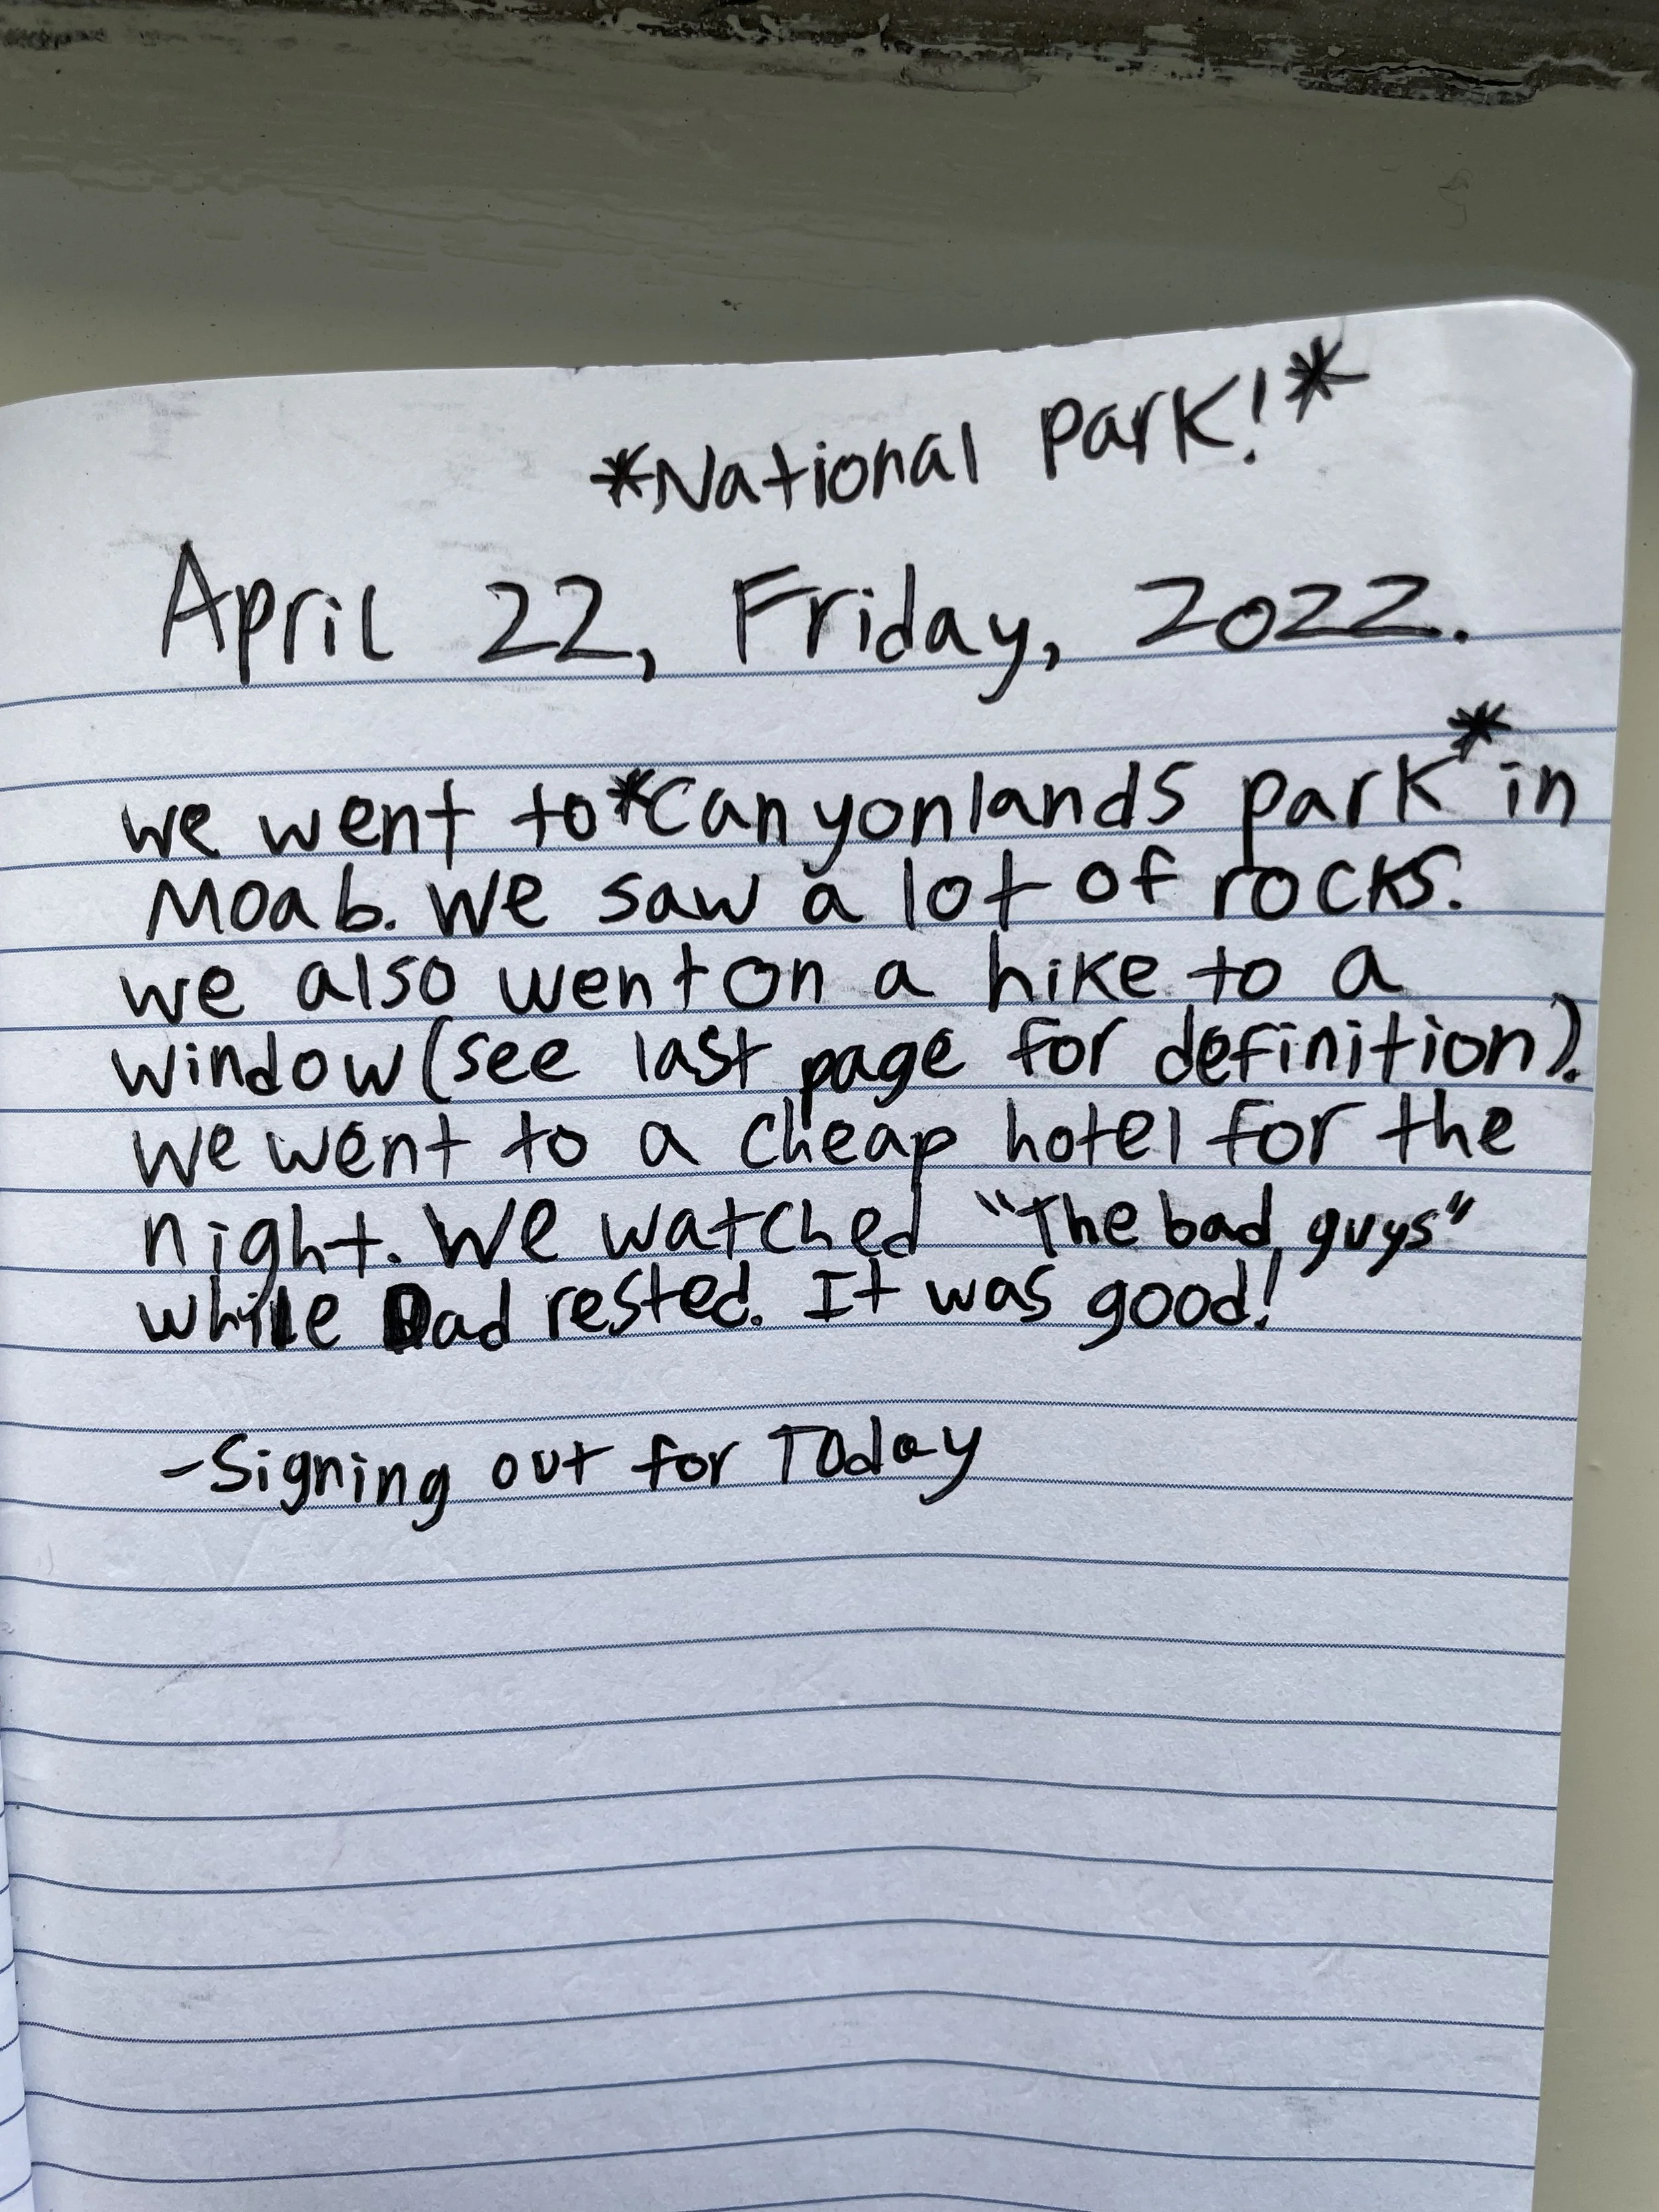 *National Park!*
April 22, Friday, 2022.
we went to *Canyonlands park* in
Moab. We saw a lot of rocks.
we also went on a hike to a
window (see last page for definition).
We went to a cheap hotel for the
night. We watched "The bad guys"
while Dad rested. It was good!
-Signing out for Today